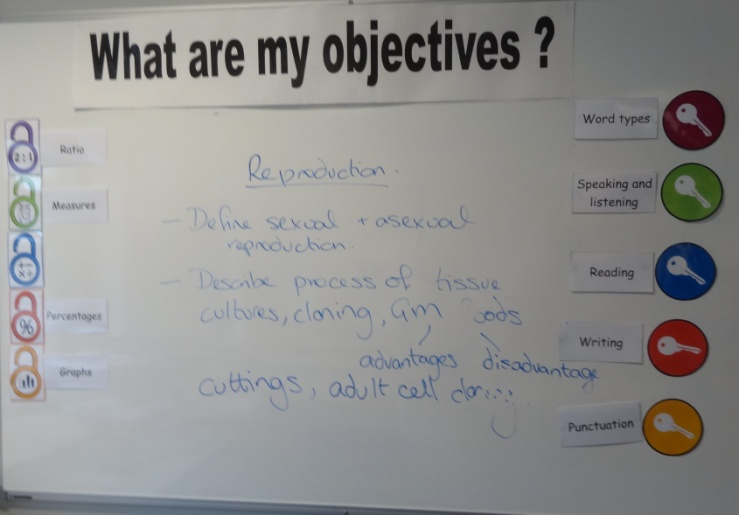 What are my objectives ?
2:1
Ratio
Measures
%
Percentages
Graphs
Reproduction.
- Define sexual + asexual
reproduction.
- Describe process of tissue
cultures, cloning, GM
advantages disadvantage
cuttings, adult cell
Word types
Speaking and
listening
Reading
Writing
Punctuation